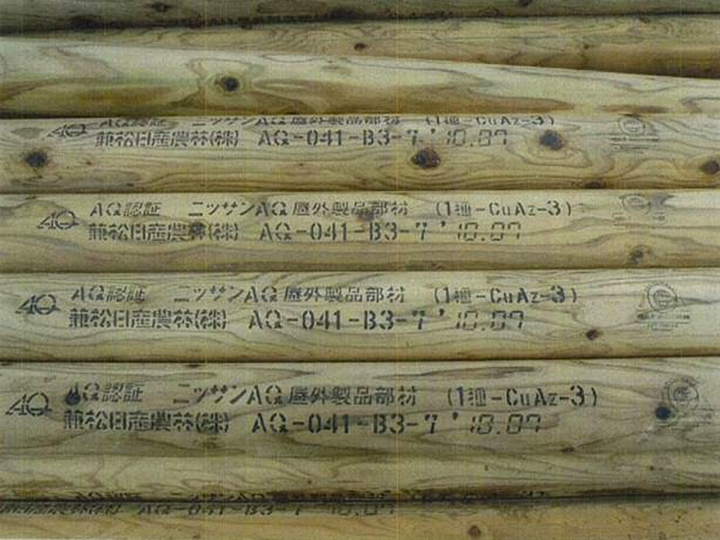 AQ認証 ニッサンAQ屋外製品部材 (1種-CuAz-3)
兼松日産農林(株) AQ-041-B3-7 '10.07
AQ AQ認証 ニッサンAQ屋外製品部材 (1種-CuAz-3)
兼松日産農林(株) AQ-041-B3-7 '10.07
AQ AQ認証 ニッサンAQ屋外製品部材 (1種-CuAz-3)
兼松日産農林(株) AQ-041-B3-7 '10.07
AQ AQ認証 ニッサンAQ屋外製品部材 (1種-CuAz-3)
兼松日産農林(株) AQ-041-B3-7 '10.07
AQ-041-B3-7 '10.07